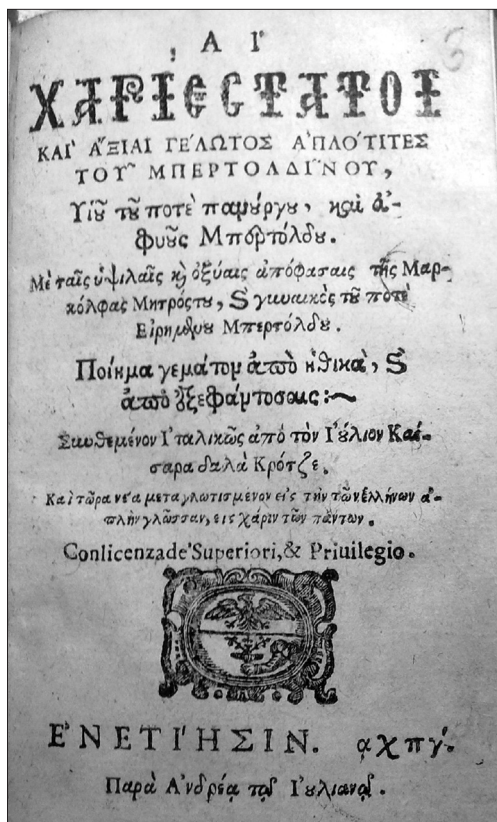 ΑΙ'
ΧΑΡΙΕΣΤΑΤΟΙ
ΚΑΙ' Α'ΞΙΑΙ ΓΕ'ΛΩΤΟΣ Α'ΠΛΟ'ΤΙΤΕΣ
ΤΟΥ͂ ΜΠΕΡΤΟΛΔΙ'ΝΟΥ,
Υἱοῦ τοῦ ποτὲ πανούργου, καὶ ἀ-
φυοῦς Μπερτόλδου.
Μὲ ταῖς ὑψιλαῖς κὶ ὀξύαις ἀπόφασαις τῆς Μαρ-
κόλφας Μητρόστου, καὶ γυναικὸς τοῦ ποτὲ
Εἰρημένου Μπερτόλδου.
Ποίημα γεμάτον ἀπὸ ἠθικὰ, καὶ
ἀπὸ ξεφάντοσαις:~
Συνθεμένον Ι'ταλικῶς ἀπὸ τὸν Ι'ούλιον Καί-
σαρα δαλὰ Κρότζε.
Καὶ τῶρα νέα μεταγλωτισμένον εἰς τὴν τῶν ἑλλήνων ἁ-
πλὴν γλῶσσαν, εις χάριν τῶν πάντων.
Conlicenzade'Superiori, & Priuilegio.
Ε'ΝΕΤΙ'ΗΣΙΝ. ᾳχπγ'.
Παρὰ Α'νδρέᾳ τῷ Ι'ουλιανῷ.